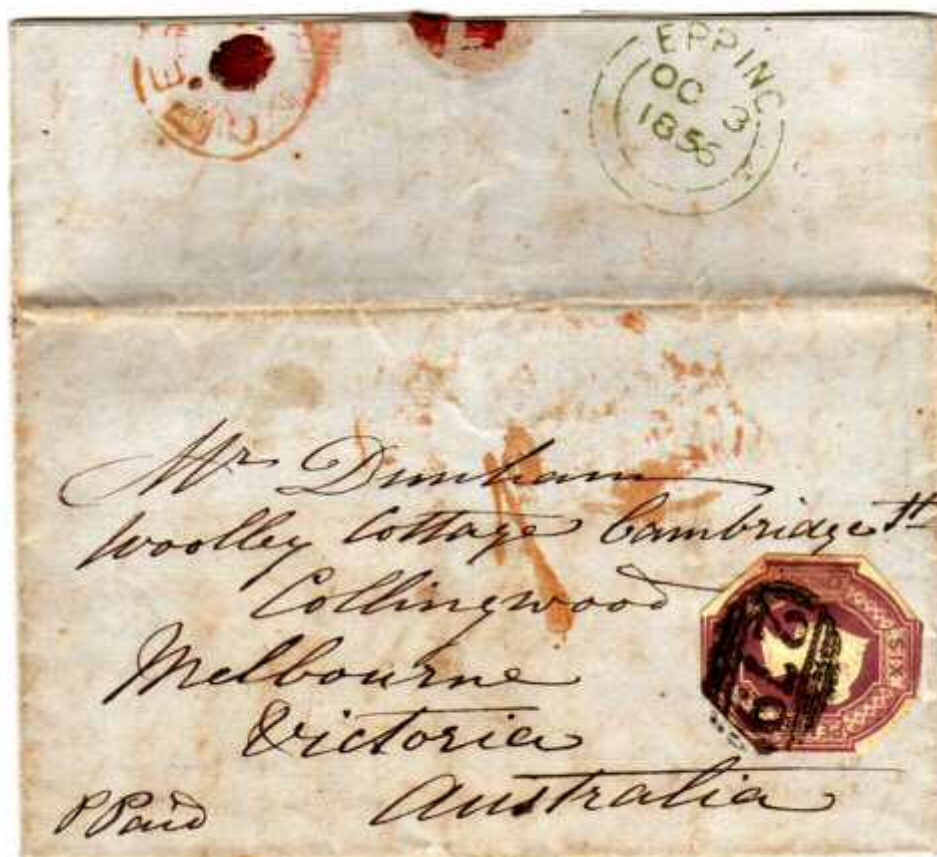 EPPING
OC 3
1856
Mr Dunham
Woolley Cottage Cambridge St
Collingwood
Melbourne
Victoria
Australia
PPaid
SIX